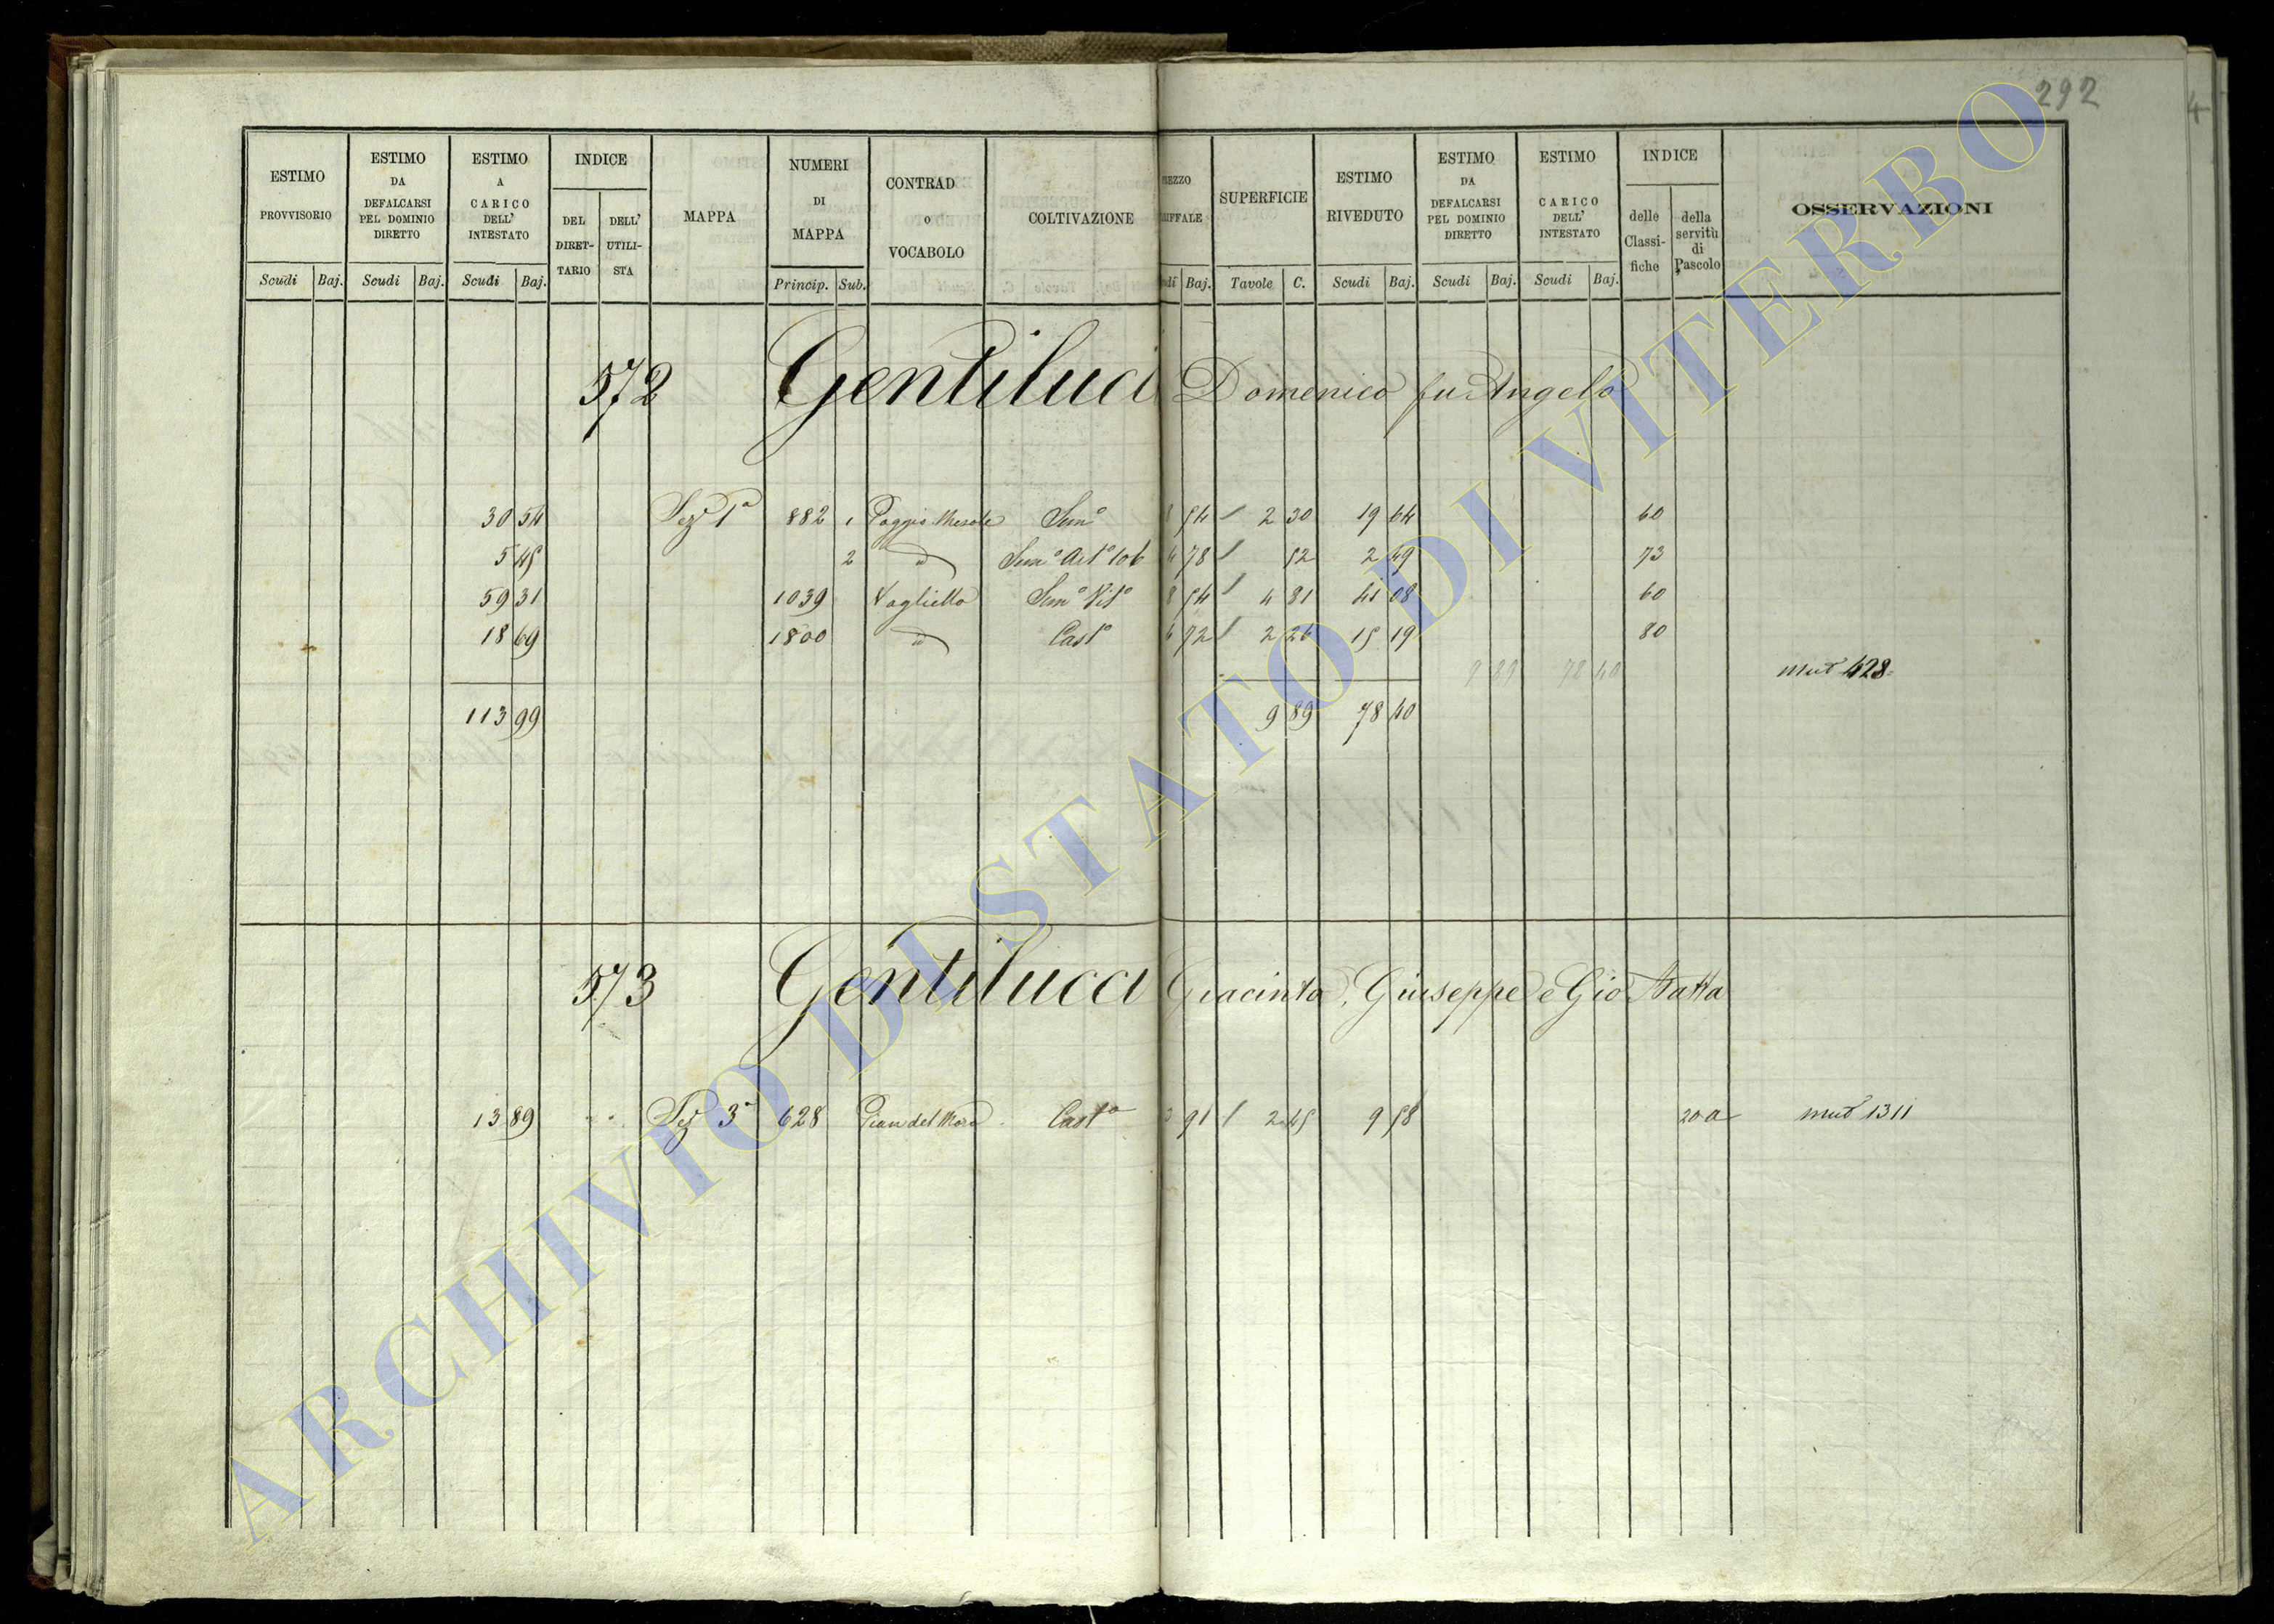 292
4
ESTIMO PROVVISORIO | ESTIMO DA DEFALCARSI PEL DOMINIO DIRETTO | ESTIMO A CARICO DELL' INTESTATO | INDICE DEL DIRET-TARIO | DELL' UTILI-STA | MAPPA | NUMERI DI MAPPA | CONTRAD o VOCABOLO | COLTIVAZIONE | REZZO RIFFALE | SUPERFICIE | ESTIMO RIVEDUTO | ESTIMO DA DEFALCARSI PEL DOMINIO DIRETTO | ESTIMO CARICO DELL' INTESTATO | INDICE delle Classi-fiche | della servitù di Pascolo | OSSERVAZIONI
Scudi Baj. Scudi Baj. Scudi Baj. Princip. Sub. udi Baj. Tavole C. Scudi Baj. Scudi Baj. Scudi Baj.
572 Gentiluci Domenico fu Angelo
30 54 Sez. 1ª 882 1 Poggio Semo 8 54 2 30 19 64 60
5 45 2 id Semo Arbo 4 78 52 2 49 73
59 31 1039 Vaglietto Semo Vito 8 54 4 81 41 08 60
18 69 1800 id Casto 6 72 2 26 15 19 80
9 89 78 40 mut 428
113 99 9 89 78 40
573 Gentilucci Giacinto, Giuseppe e Gio Batta
13 89 Sez 3ª 628 Pian del Casto 3 91 2 45 9 58 20a mut 1311
ARCHIVIO DI STATO DI VITERBO